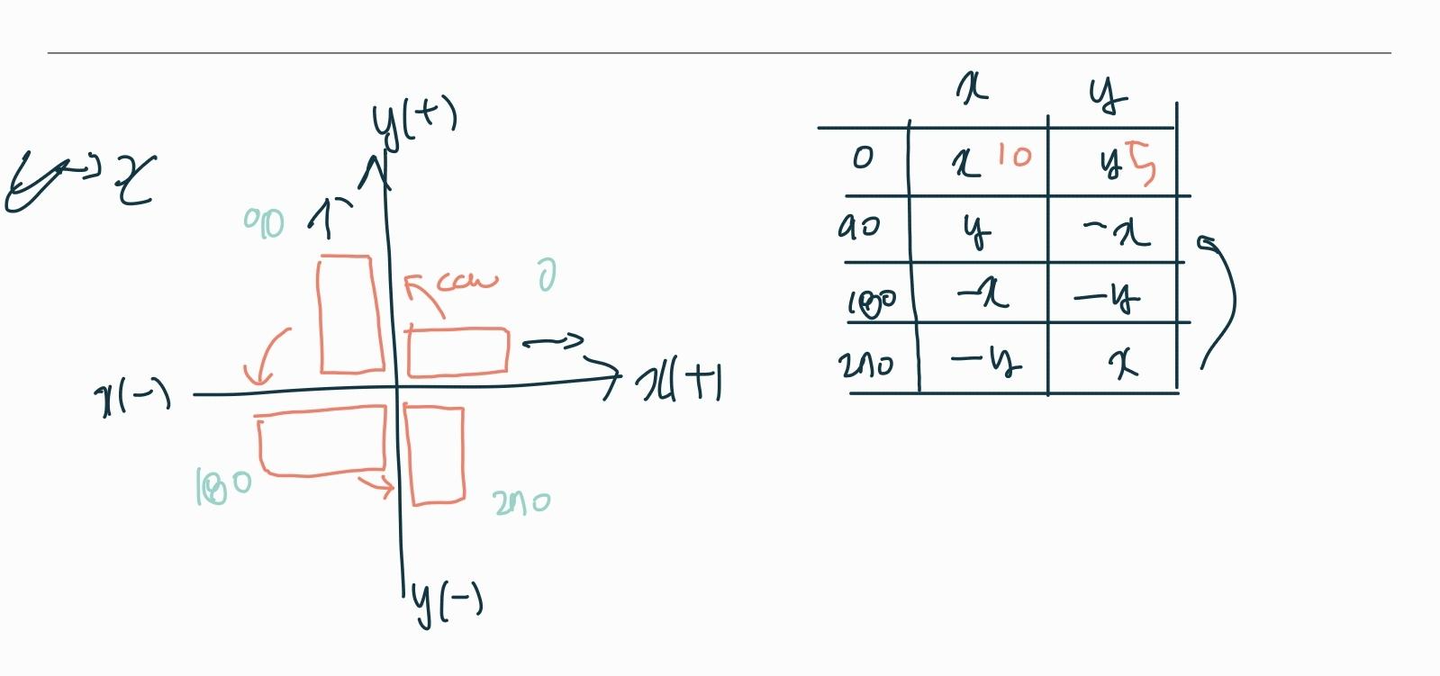 y(+)
x
90
ccw 0
x(-)
x(+)
180
270
y(-)
x y
0 x 10 y 5
90 y -x
180 -x -y
270 -y x